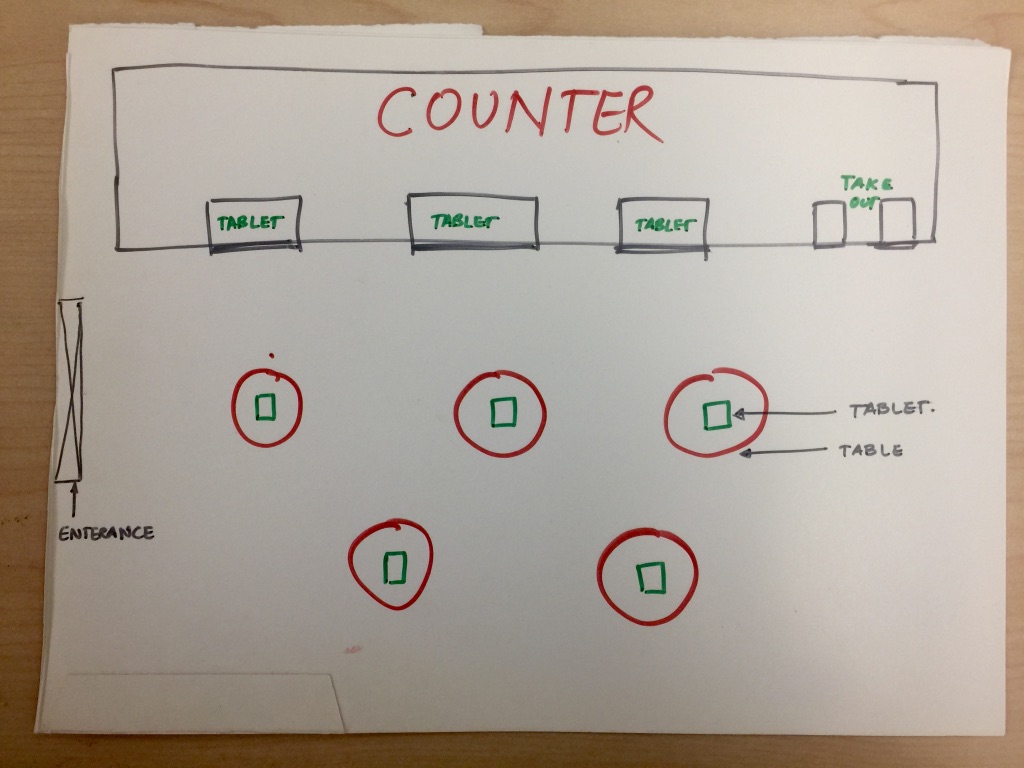 COUNTER
TAKE
OUT
TABLET
TABLET
TABLET
TABLET.
TABLE
ENTERANCE